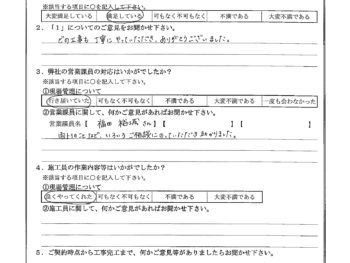 ※該当する項目に○を記入して下さい。
大変満足している 満足している 可もなく不可もなく 不満である 大変不満である
2．「1」についてのご意見をお聞かせ下さい。
どの工事も 丁寧にやっていただき、ありがとうございました。
3．弊社の営業課員の対応はいかがでしたか？
※該当する項目に○を記入して下さい。
①現場管理について
行き届いていた 可もなく不可もなく 不満である 大変不満である 一度も会わなかった
②営業課員に関して、何かご意見があればお聞かせ下さい。
営業課員名【 福田 さん】 【 】
など、いろいろご相談にのっていただき
4．施工員の作業内容等はいかがでしたか？
※該当する項目に○を記入して下さい。
①現場管理について
良くやってくれた 可もなく不可もなく 不満である 大変不満である
②施工員に関して、何かご意見があればお聞かせ下さい。
5．ご契約時点から工事完工まで、何かご意見等がありましたらお聞かせ下さい。